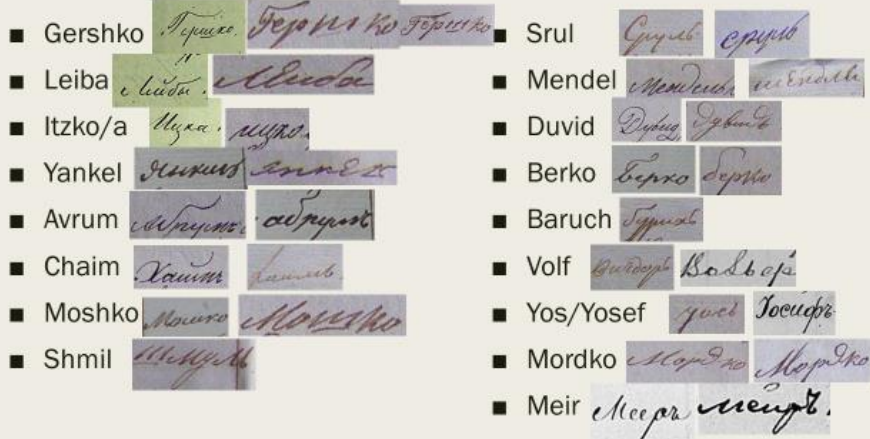 ■ Gershko Гершко. Гершко Гершко
■ Leiba Лейбы. Лейба
■ Itzko/a Ицка. ицко.
■ Yankel Янкель янкел
■ Avrum Абрумъ. абрумъ
■ Chaim Хаимъ Хаимъ.
■ Moshko Мошко Мошко
■ Shmil Шмуль
■ Srul Сруль сруль
■ Mendel Мендель мендель
■ Duvid Дувид дувидъ
■ Berko Берко берко
■ Baruch
■ Volf Вольфъ
■ Yos/Yosef Іось Іосифъ
■ Mordko Мордко Мордко
■ Meir Мееръ меиръ.